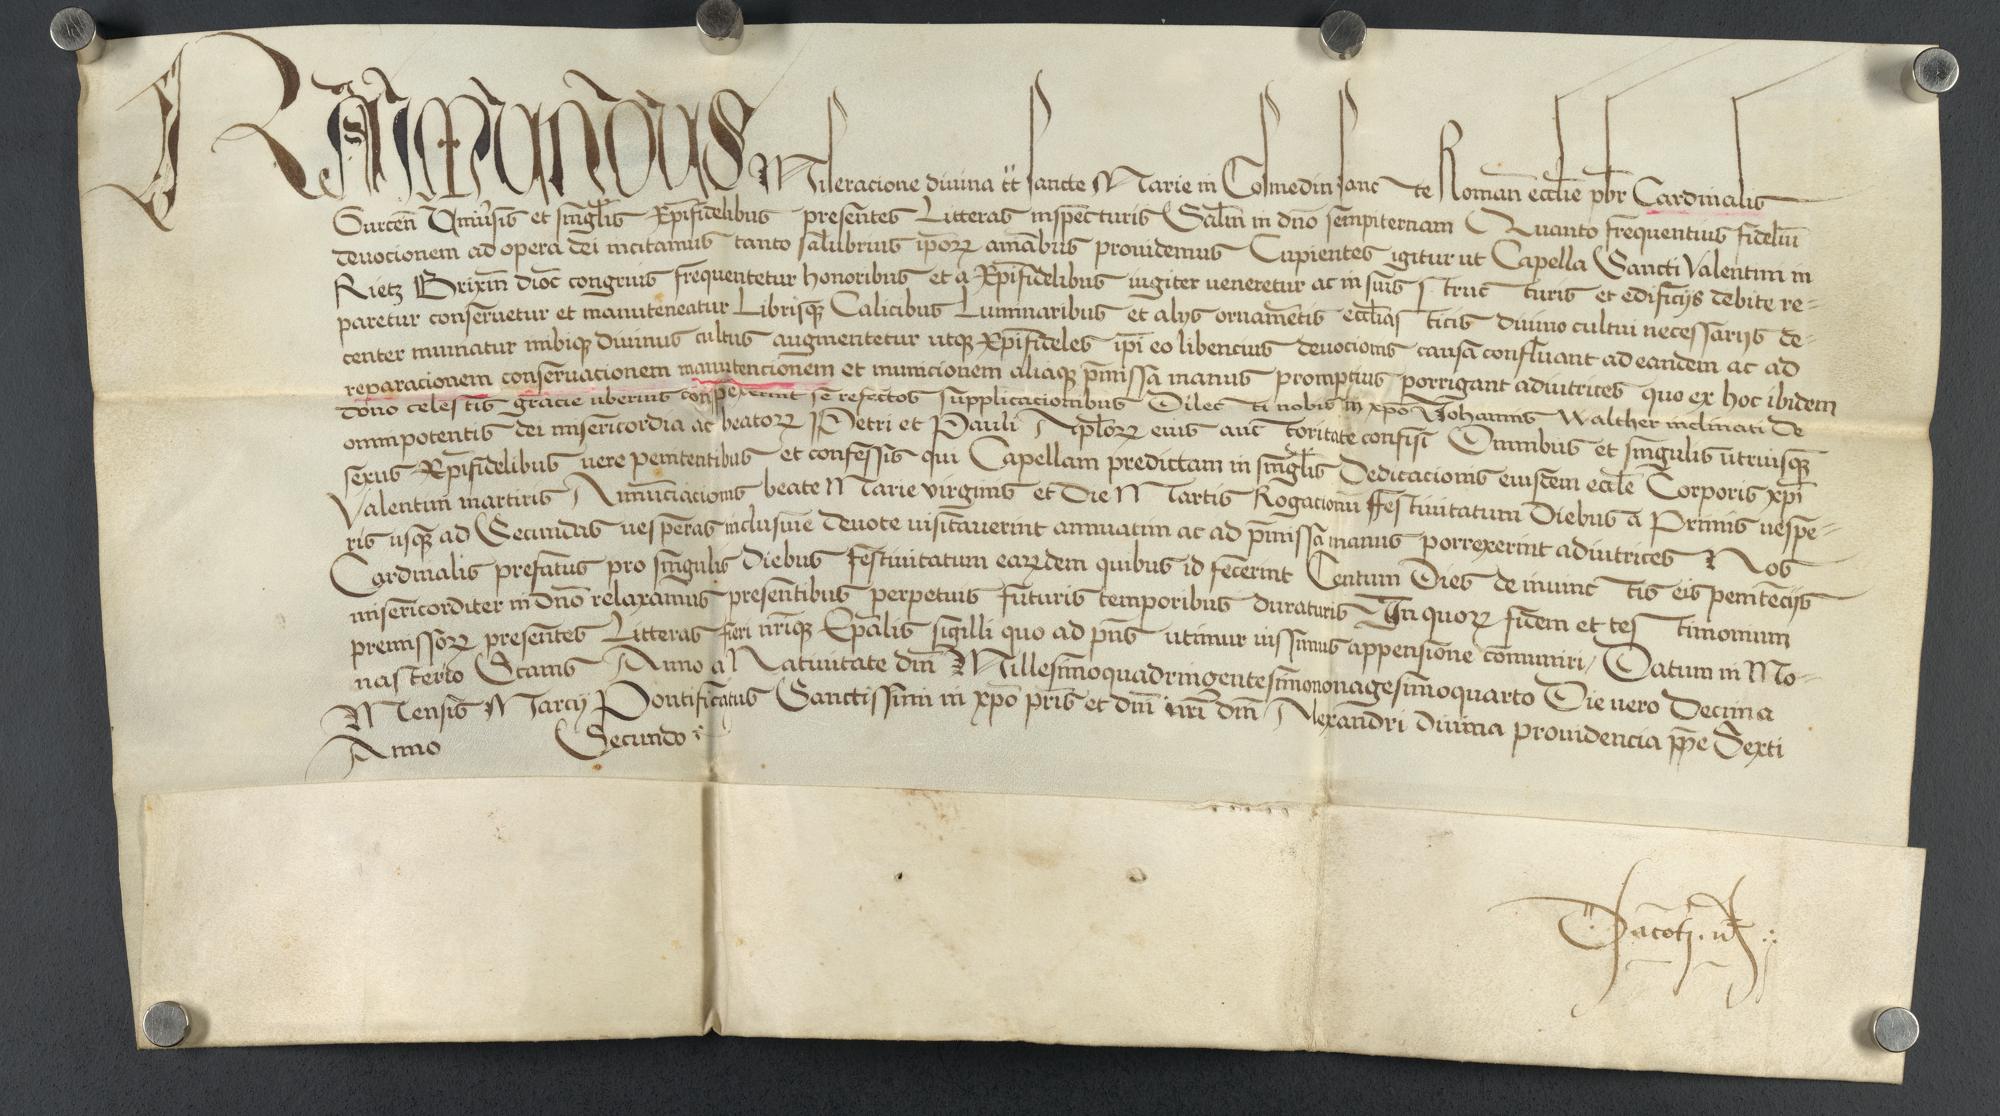 RAIMUNDUS Miseracione divina tt̄ sancte Marie in Cosmedin sancte Roman̄ eccl̄ie pb̄r Cardinalis
Gurcen̄ Univ̄sis et singl̄is Xp̄ifidelibus presentes Litteras inspecturis Sal̄m in dn̄o sempiternam Quanto frequentius fideliū
devocionem ad opera dei incitamus tanto salubrius ip̄oꝝ aīabus providemus Cupientes igitur ut Capella Sancti Valentini in
Rietz Brixin̄ dioc̄ congruis frequentetur honoribus et a Xp̄ifidelibus iugiter veneretur ac in suis structuris et edificijs debite re-
paretur conservetur et manuteneatur Librisqꝫ Calicibus Luminaribus et alijs ornamētis eccl̄iasticis divino cultui necessarijs de-
center muniatur inibiqꝫ divinus cultus augmentetur utqꝫ Xp̄ifideles ip̄i eo libencius devocionis causa confluant ad eandem ac ad
reparacionem conservacionem manutencionem et municionem aliaqꝫ p̄missa manus promptius porrigant adiutrices quo ex hoc ibidem
dono celestis gracie uberius conspexerint se refectos supplicacionibus Dilecti nobis in xp̄o Johannis Walther inclinati de
omnipotentis dei misericordia ac beatoꝝ Petri et Pauli Apl̄oꝝ eius auctoritate confisi Omnibus et singulis utriusqꝫ
sexus Xp̄ifidelibus vere penitentibus et confessis qui Capellam predictam in singl̄is Dedicacionis eiusdem eccl̄e Corporis xp̄i
Valentini martiris Annūciacionis beate Marie virginis et Die Martis Rogacionū ffestivitatum Diebus a Primis vespe-
ris usqꝫ ad Secundas vesperas inclusive devote visitaverint annuatim ac ad p̄missa manus porrexerint adiutrices Nos
Cardinalis prefatus pro singulis diebus festivitatum eaꝝdem quibus id fecerint Centum Dies de iniunctis eis penitēcijs
misericorditer in dn̄o relaxamus presentibus perpetuis futuris temporibus duraturis In quoꝝ fidem et testimonium
premissoꝝ presentes Litteras fieri nr̄iqꝫ Ep̄alis sigilli quo ad pn̄s utimur iussimus appensione cōmuniri / Datum in Mo-
nasterio Scams Anno a Nativitate dn̄i Millesimoquadringentesimononagesimoquarto Die vero Decima
Mensis Marcij Pontificatus Sanctissimi in xp̄o pr̄is et dn̄i nr̄i dn̄i Alexandri divina providencia pp̄e Sexti
Anno Secundo